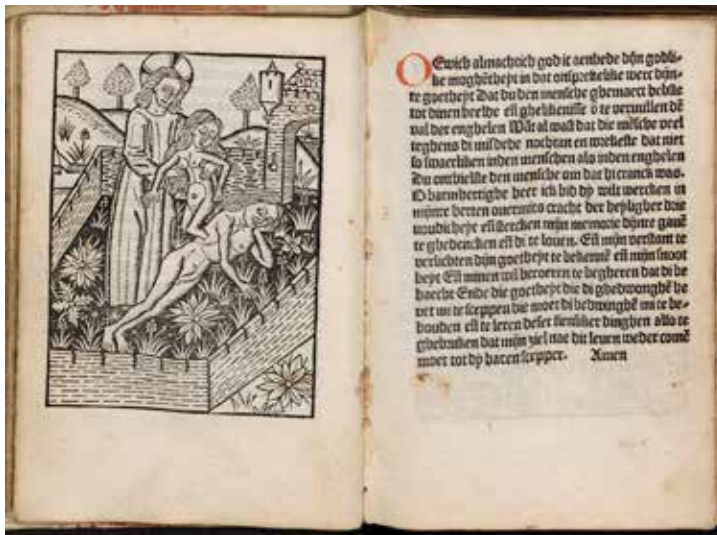 O Ewich almachtich god ic aenbede dyn godli-
ke moghēheyt in dat onsprekelike werc dijn-
re goetheyt Dat du den mensche ghemaect hebste
tot dinen beelde eñ ghelikenisse ō te vervullen dē
val der enghelen Wāt al wast dat die mēsche veel
teghens di misdede nochtan en wrekeste dat niet
so swaerliken inden menschen als inden enghelen
Du onthielste den mensche om dat hi cranck was.
O barmhertighe heer ick bid dy wilt wercken in
mijnre herten overmits cracht der heyligher drie
voudicheyt eñ stercken mijn memorie dijnre gauē
te ghedencken eñ di te louen. Eñ mijn verstant te
verlichten dijn goetheyt te bekennē eñ mijn snoot
heyt Eñ minen wil beroeren te begheren dat di be
haecht Ende die goetheyt die di ghedwonghē he
vet mi te sceppen die moet di bedwinghē mi te be-
houden eñ te leren deser sienliker dinghen also te
ghebruken dat mijn ziel nae dit leven weder comē
moet tot dy haren scepper. Amen